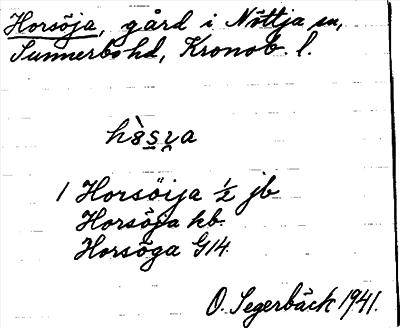 Horsöja, gård i Nöttja sn,
Sunnerbo hd, Kronob. l.
1 Horsöija ½ jb
Horsöja hb.
Horsöga G14.
O. Segerbäck 1941.